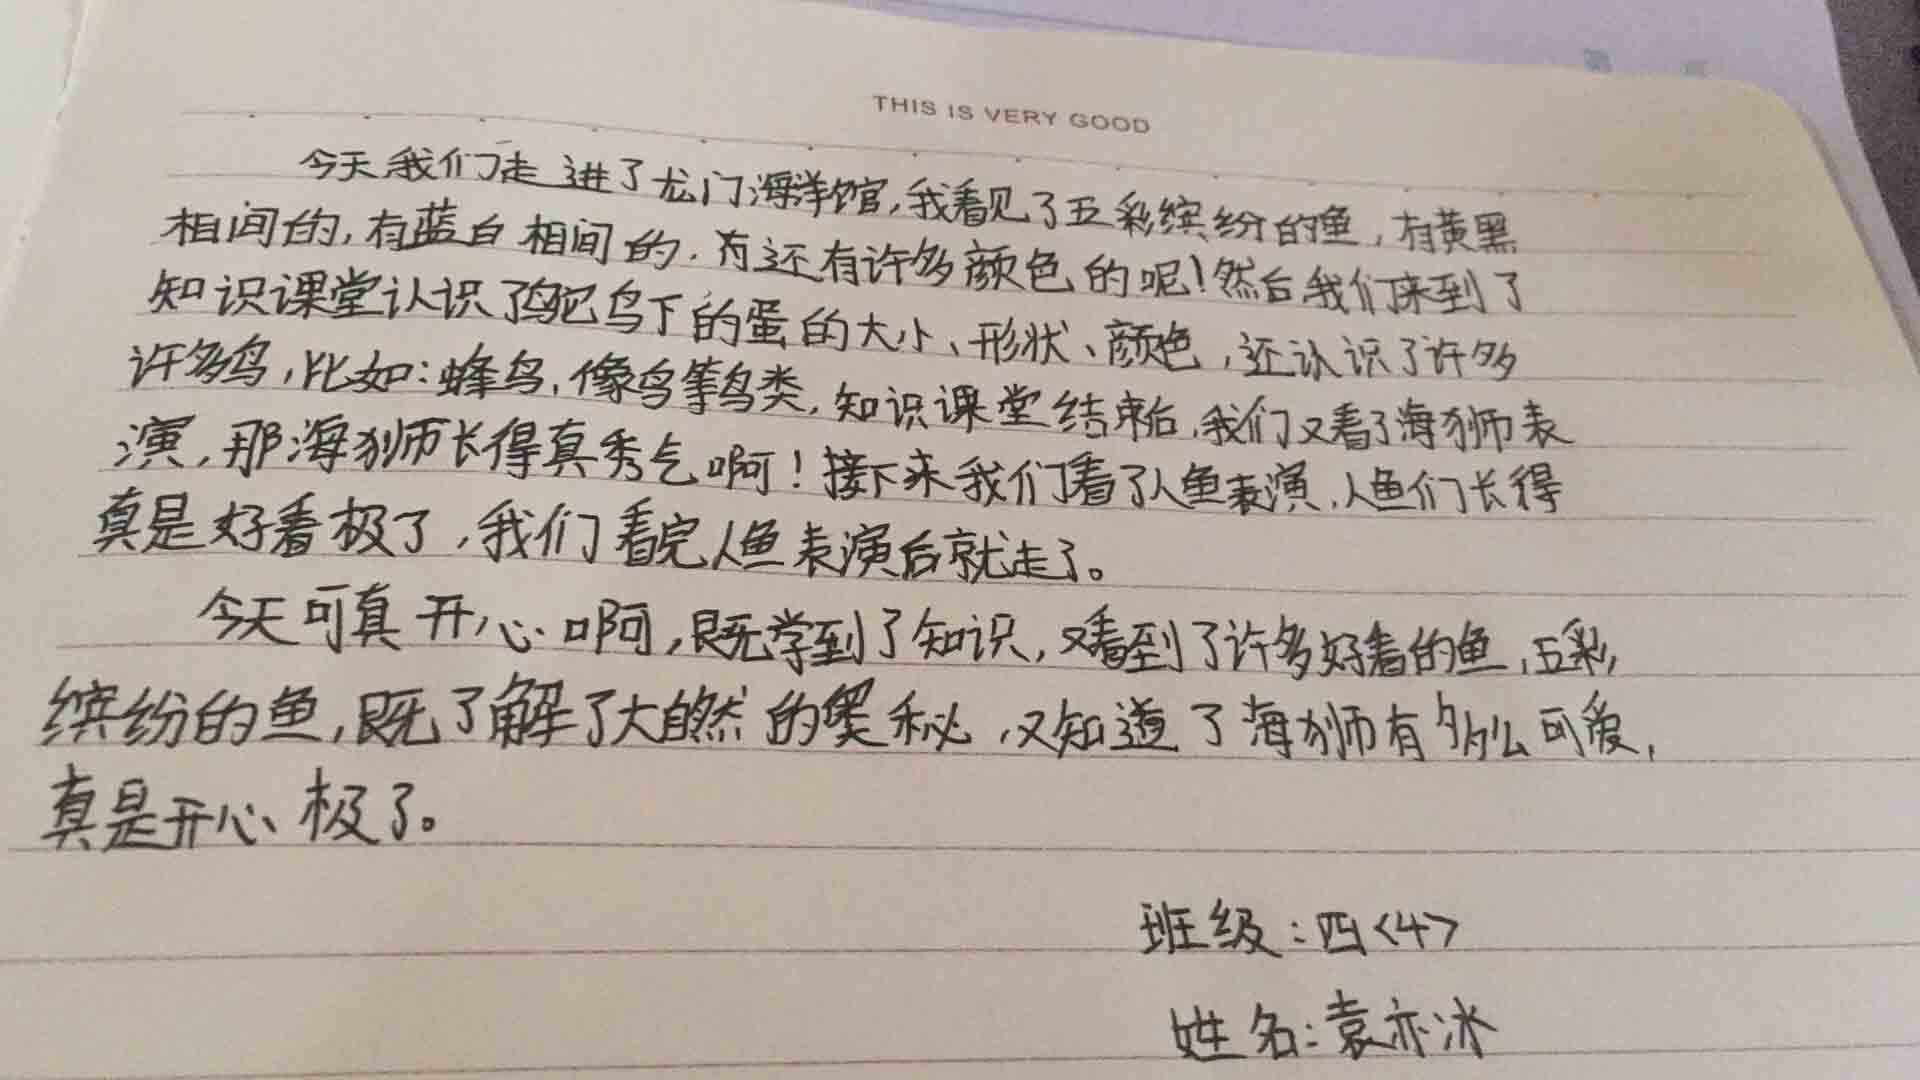 THIS IS VERY GOOD
今天我们走进了龙门海洋馆,我看见了五彩缤纷的鱼,有黄黑
相间的,有蓝白相间的,有还有许多颜色的呢!然后我们来到了
知识课堂认识了鸵鸟下的蛋的大小、形状、颜色,还认识了许多
许多鸟,比如:蜂鸟,像鸟等鸟类,知识课堂结束后,我们又看了海狮表
演,那海狮长得真秀气啊!接下来我们看了人鱼表演,人鱼们长得
真是好看极了,我们看完人鱼表演后就走了。
今天可真开心啊,既学到了知识,又看到了许多好看的鱼,五彩
缤纷的鱼,既了解了大自然的奥秘,又知道了海狮有多么可爱,
真是开心极了。
班级:四<4>
姓名:袁亦冰